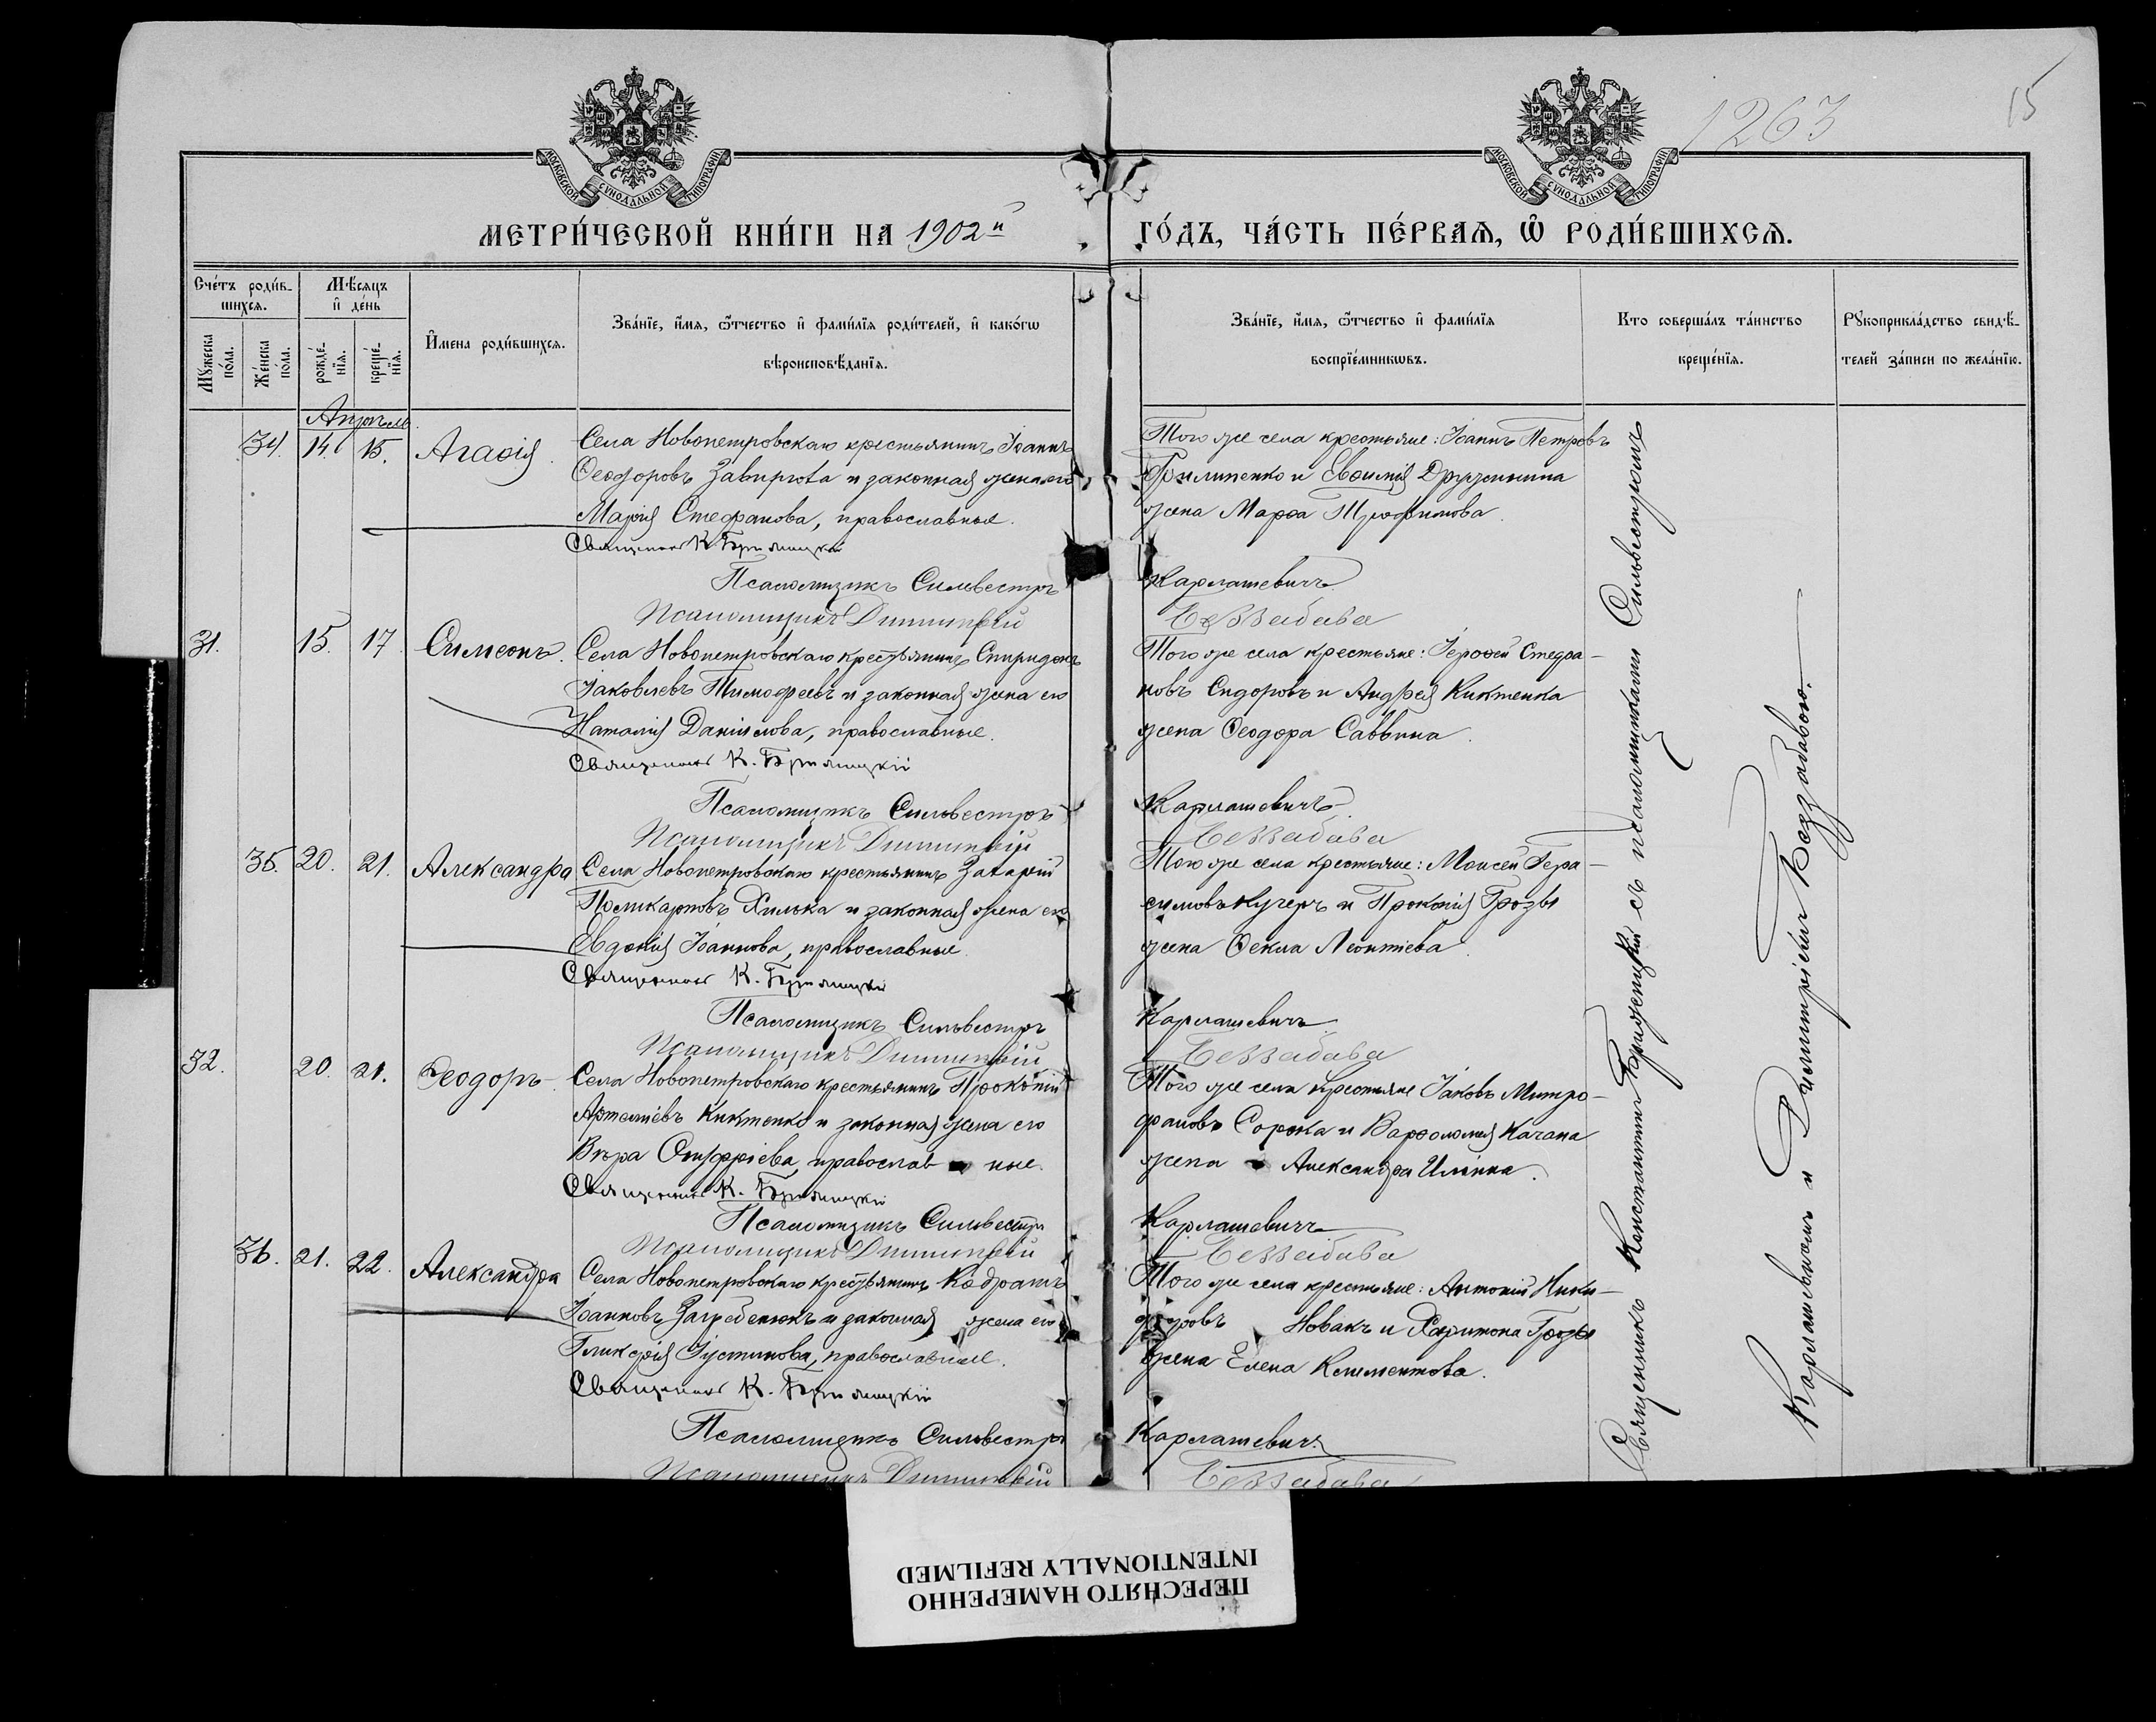 1263
15
МОСКОВСКОЙ СѴНОДАЛЬНОЙ ТИПОГРАФІИ
МОСКОВСКОЙ СѴНОДАЛЬНОЙ ТИПОГРАФІИ
МЕТРИ́ЧЕСКОЙ КНИ́ГИ НА 1902й
ГО́ДЪ, ЧА́СТЬ ПЕ́РВАѦ, Ѽ РОДИ́ВШИХСѦ.
Сче́тъ роди́в-
шихсѧ.
Мѣ́сѧцъ
и҆ де́нь
Мꙋ́жеска по́ла.
Же́нска по́ла.
рожде́-нїѧ.
креще́-нїѧ.
И҆мена роди́вшихсѧ.
Зва́нїе, и҆́мѧ, ѻ҆́тчество и҆ фами́лїѧ роди́телей, и҆ како́гѡ
вѣроисповѣ́данїѧ.
Зва́нїе, и҆́мѧ, ѻ҆́тчество и҆ фами́лїѧ
воспрїе́мникѡвъ.
Кто соверша́лъ та́инство
креще́нїѧ.
Рꙋкоприкла́дство свидѣ́-
телей за́писи по жела́нїю.
Апрѣль
34. 14. 15. Агаѳія.
Села Новопетровскаго крестьянинъ Іоаннъ
Ѳеодоровъ Завирюха и законная жена его
Марія Стефанова, православные.
Священникъ К.
Псаломщикъ Сильвестръ
Псаломщикъ Димитрій
Того же села крестьяне: Іоаннъ Петровъ
и Евѳимія Дружинина
жена Марѳа Трофимова.
Карлашевичъ
Беззабава
31. 15. 17. Симеонъ.
Села Новопетровскаго крестьянинъ Спиридонъ
Іаковлевъ Тимофеевъ и законная жена его
Наталія Даніилова, православные.
Священникъ К.
Псаломщикъ Сильвестръ
Псаломщикъ Димитрій
Того же села крестьяне: Іероѳей Стефа-
новъ Сидоровъ и Андрея Киктенка
жена Ѳеодора Саввина.
Карлашевичъ
Беззабава
35. 20. 21. Александра
Села Новопетровскаго крестьянинъ Захарій
Поликарповъ Хилька и законная жена его
Евдокія Іоаннова, православные.
Священникъ К.
Псаломщикъ Сильвестръ
Псаломщикъ Димитрій
Того же села крестьяне: Моисей Гера-
симовъ Кучеръ и Прокопія Грозы
жена Ѳекла Леонтіева.
Карлашевичъ
Беззабава
32. 20. 21. Ѳеодоръ.
Села Новопетровскаго крестьянинъ Прокопій
Артеміевъ Киктенко и законная жена его
Вѣра Онуфріева, православ ные.
Священникъ К.
Псаломщикъ Сильвестръ
Псаломщикъ Димитрій
Того же села крестьяне Іаковъ Митро-
фановъ Сорока и Варѳоломея Качана
жена Александра Ильина.
Карлашевичъ
Беззабава
36. 21. 22. Александра
Села Новопетровскаго крестьянинъ Кодратъ
Іоанновъ Загребенюкъ и законная жена его
Гликерія Іустинова, православные.
Священникъ К.
Псаломщикъ Сильвестръ
Псаломщикъ Димитрій
Того же села крестьяне: Антоній Ники-
форовъ Новакъ и Харитона Грозы
жена Елена Климентова.
Карлашевичъ
Беззабава
Священникъ Константинъ съ псаломщиками Сильвестромъ
Карлашевичемъ и Димитріемъ Беззабавою.
ПЕРЕСНЯТО НАМЕРЕННО
INTENTIONALLY REFILMED